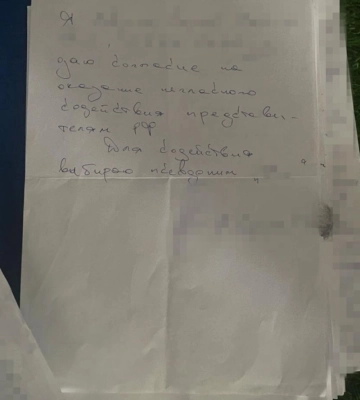 Я
даю согласие на
оказание негласного
содействия представи-
телям РФ
Для содействия
выбираю псевдоним " "